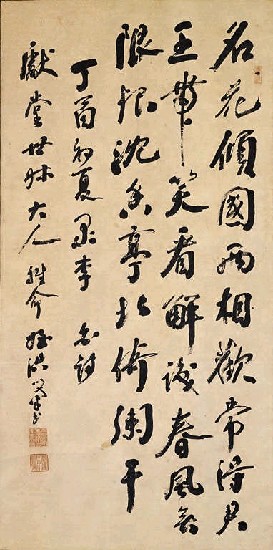 名花傾國兩相歡常得君
王帶笑看解識春風無
限恨沈香亭北倚闌干
丁酉初夏李白詩
獻堂世叔大人雅命姪洪